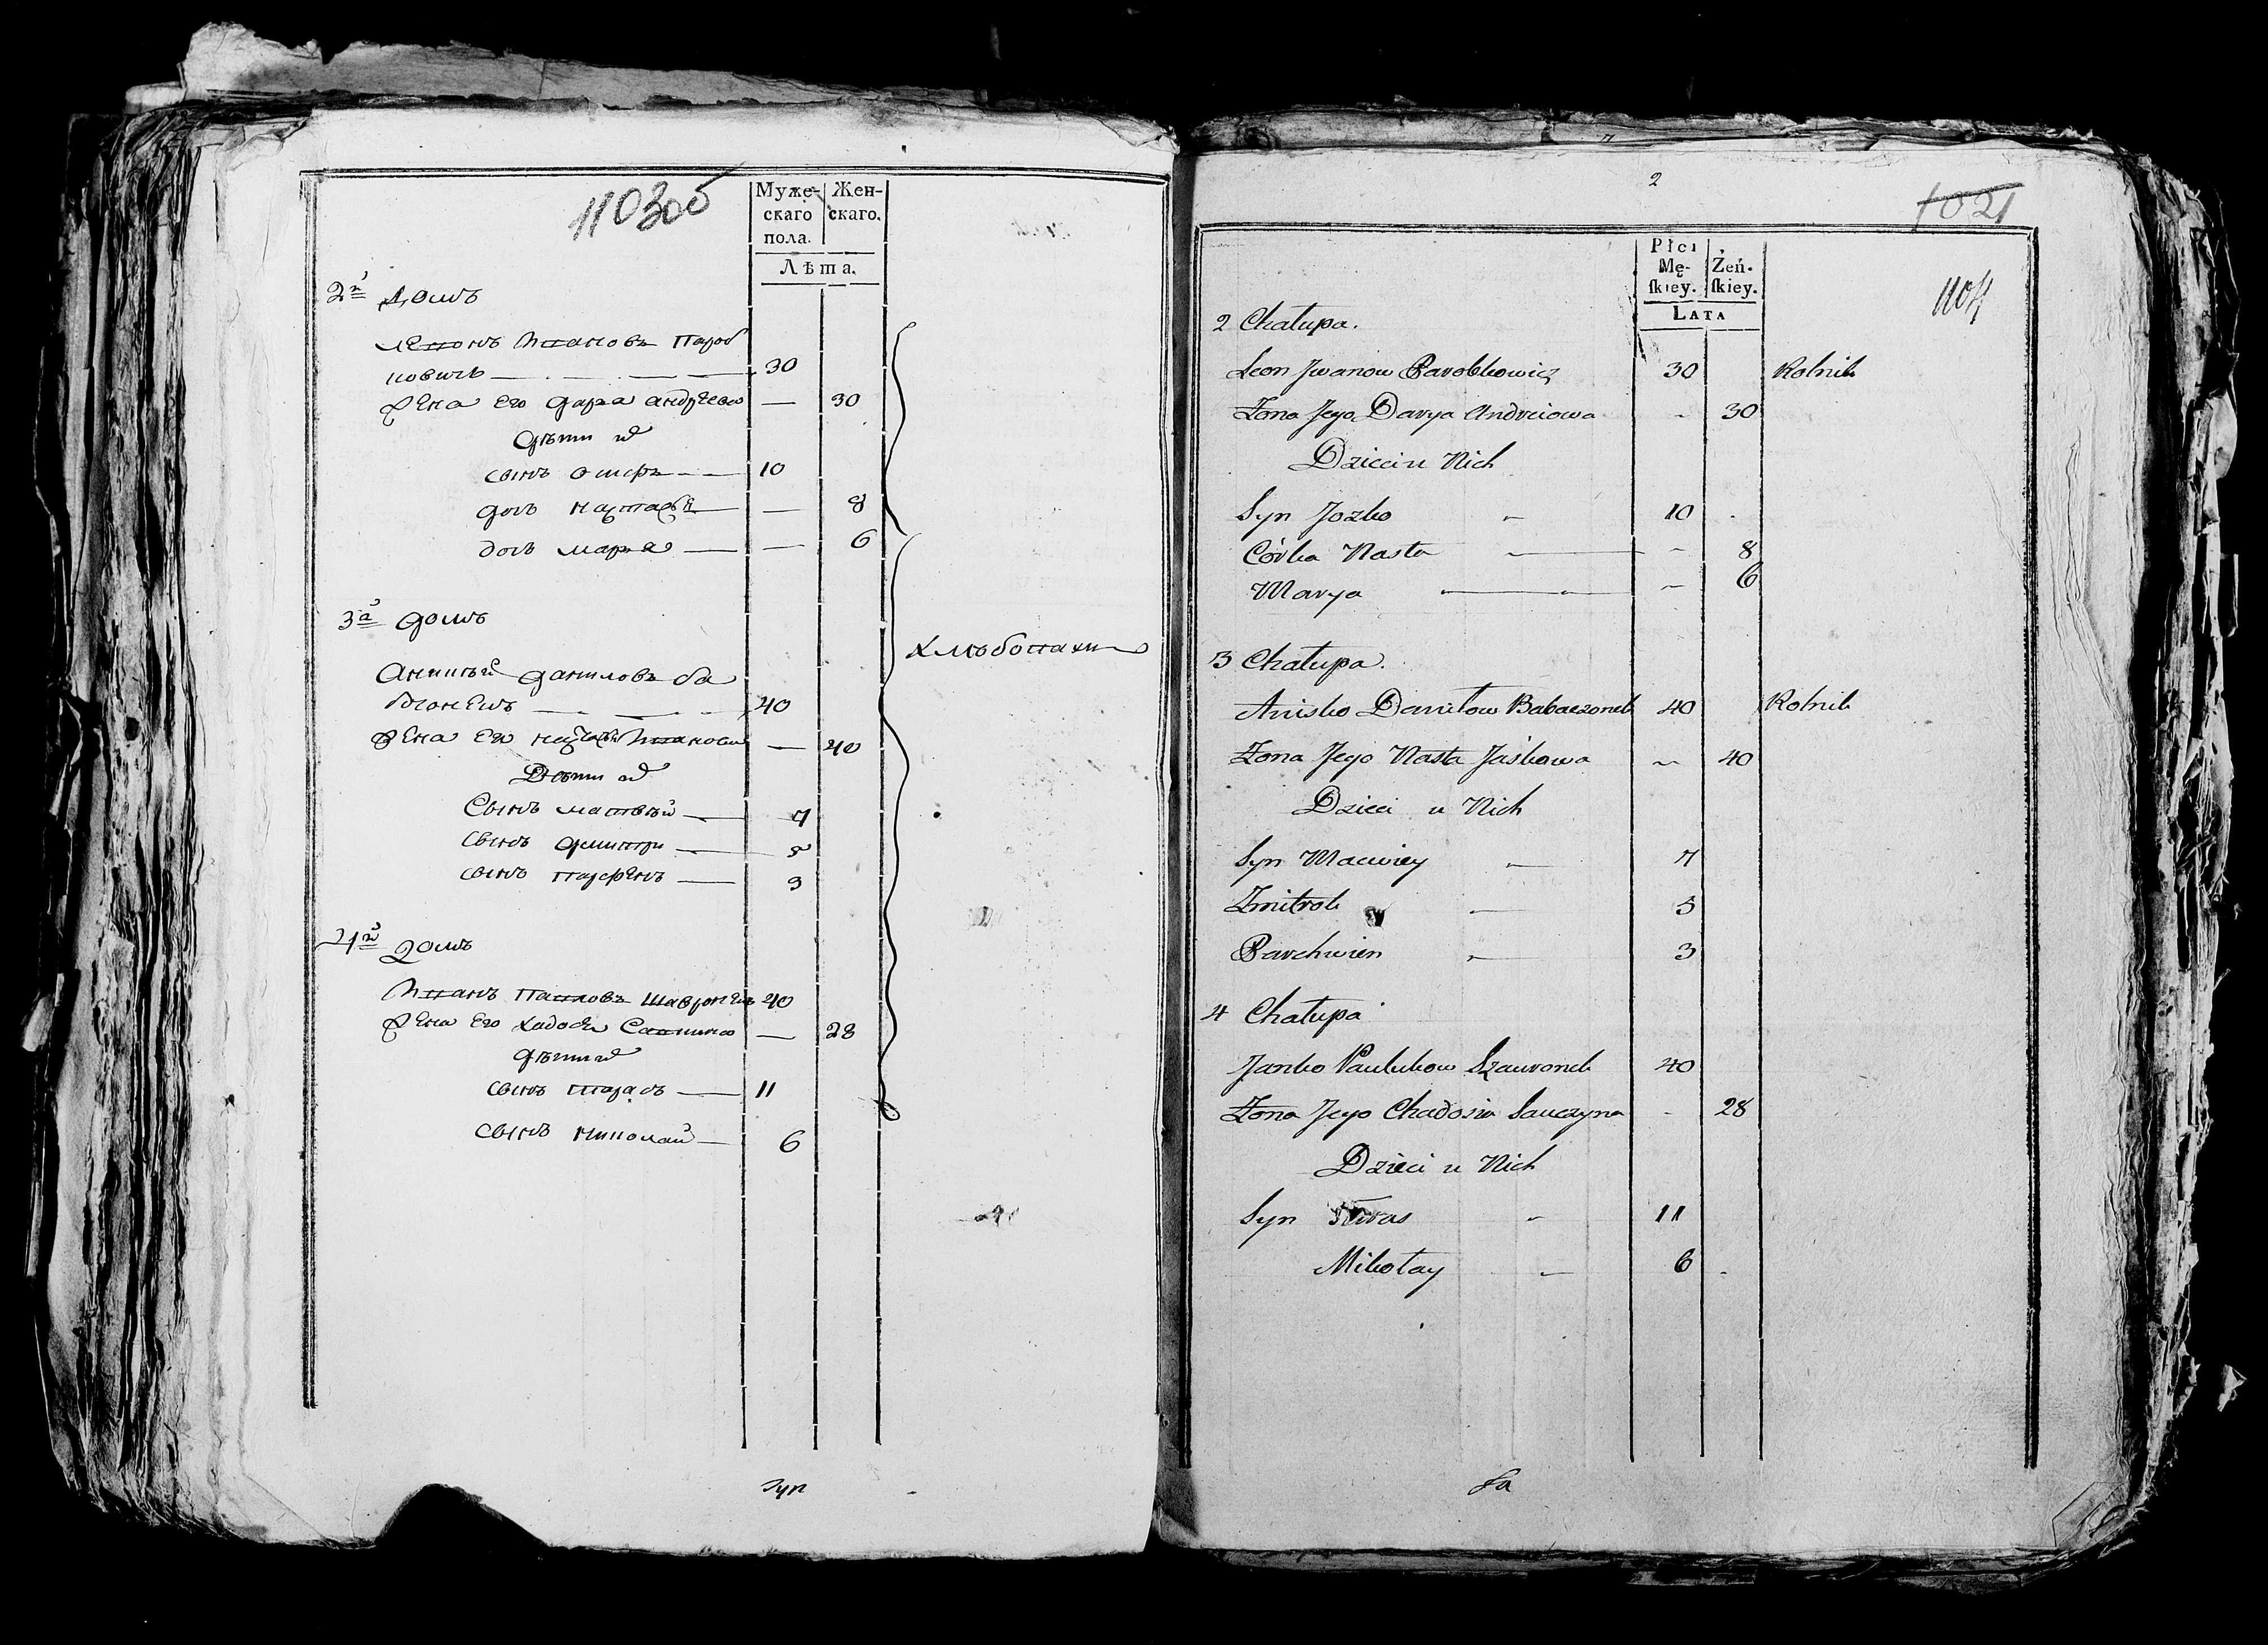 1103об
Муже- Жен-
скаго скаго.
пола.
Лѣта.
2й Домъ
Леонъ Ивановъ Пароб
ковичъ — 30
Жена Его Дарья Андреева — 30
Дѣти их
сынъ Осипъ — 10
дочь Настасья — — 8
дочь Марья — — 6
3й домъ
Анисѣй Даниловъ Ба
бчонекъ — 40
Жена Его Настасья Иванова — 40
Дѣти их
Сынъ Матвѣй — 7
Сынъ Дмитри — 5
сынъ Парфенъ — 3
хлѣбопахи
4й домъ
Иванъ Павловъ Шавронекъ 40
Жена Его Хадосья Саввина — 28
дѣти их
сынъ Тарасъ — 11
Сынъ Николай — 6
Syn
2
1021
1104
Płci
Mę- Żeń-
skiey. skiey.
LATA
2 Chałupa.
Leon Jwanow Parobkowicz 30 Rolnik
Żona Jego Darya Andreiowa - 30
Dzieci u Nich
Syn Jozko - 10
Córka Nasta — - 8
Marya — - 6
3 Chałupa.
Anisko Daniłow Babaczonek 40 Rolnik
Żona Jego Nasta Jaśkowa - 40
Dzieci u Nich
Syn Macwiey — 7
Zmitrok — 5
Parchwien — 3
4 Chałupa
Janko Paulukow Szauronek 40
Żona Jego Chadosia Sauczyna - 28
Dzieci u Nich
Syn Taras - 11
Mikołay - 6